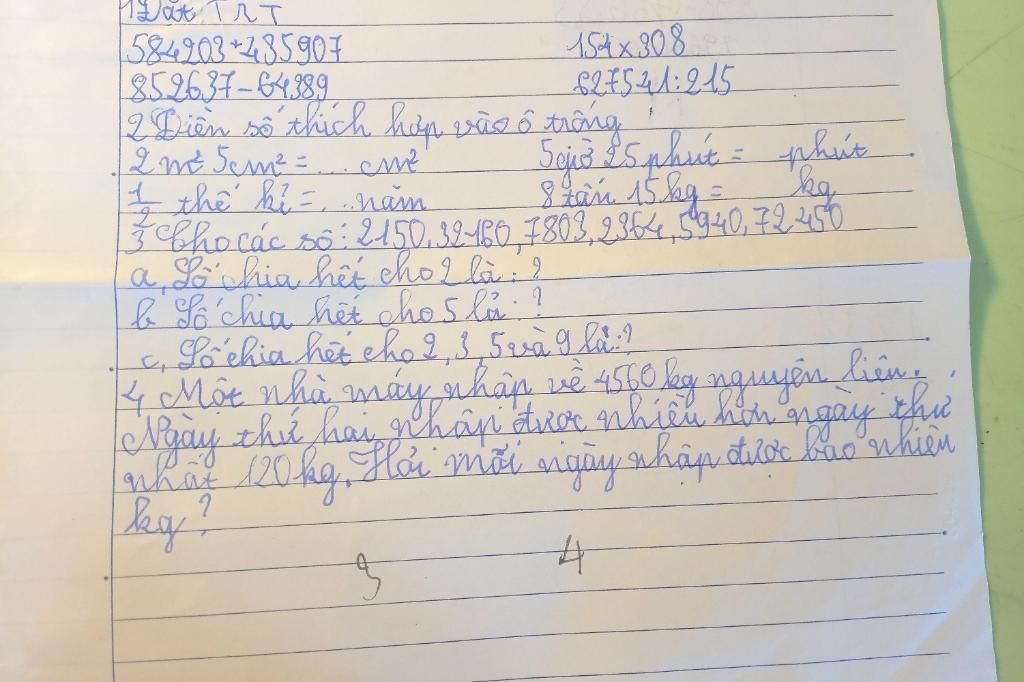 1 Đặt T R T
584203+435907 154×308
852637-64389 627541:215
2 Điền số thích hợp vào ô trống
2 m² 5cm² = ... cm² 5giờ 25 phút = phút
1/2 thế kỉ = ... năm 8 tấn 15 kg = kg
3 Cho các số: 2150, 32160, 7803, 2364, 5940, 72450
a, Số chia hết cho 2 là: ?
b, Số chia hết cho 5 là: ?
c, Số chia hết cho 2, 3, 5 và 9 là: ?
4 Một nhà máy nhập về 4560 kg nguyên liên.
Ngày thứ hai nhập được nhiều hơn ngày thư
nhất 120 kg. Hỏi mỗi ngày nhập được bao nhiên
kg ?
3 4